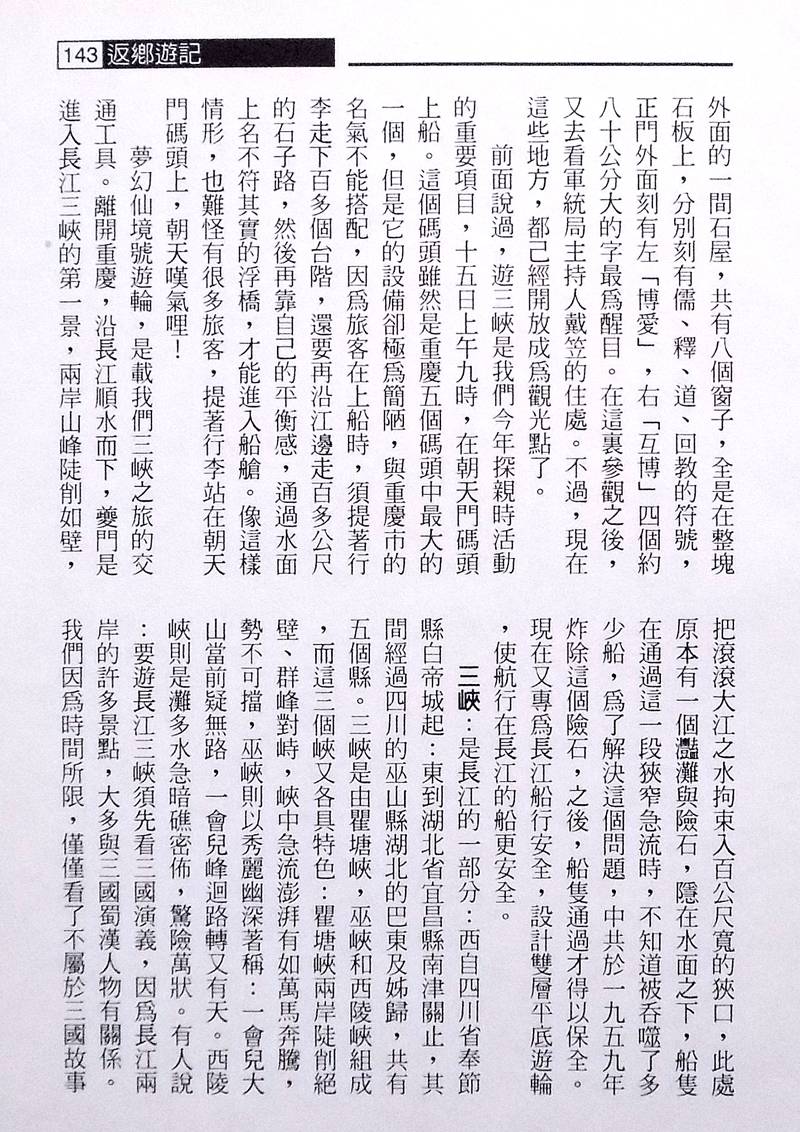 143 返鄉遊記
外面的一間石屋，共有八個窗子，全是在整塊
石板上，分別刻有儒、釋、道、回教的符號，
正門外面刻有左「博愛」，右「互博」四個約
八十公分大的字最爲醒目。在這裏參觀之後，
又去看軍統局主持人戴笠的住處。不過，現在
這些地方，都己經開放成爲觀光點了。
前面說過，遊三峽是我們今年探親時活動
的重要項目，十五日上午九時，在朝天門碼頭
上船。這個碼頭雖然是重慶五個碼頭中最大的
一個，但是它的設備卻極爲簡陋，與重慶市的
名氣不能搭配，因爲旅客在上船時，須提著行
李走下百多個台階，還要再沿江邊走百多公尺
的石子路，然後再靠自己的平衡感，通過水面
上名不符其實的浮橋，才能進入船艙。像這樣
情形，也難怪有很多旅客，提著行李站在朝天
門碼頭上，朝天嘆氣哩！
夢幻仙境號遊輪，是載我們三峽之旅的交
通工具。離開重慶，沿長江順水而下，夔門是
進入長江三峽的第一景，兩岸山峰陡削如壁，
把滾滾大江之水拘束入百公尺寬的狹口，此處
原本有一個灩灘與險石，隱在水面之下，船隻
在通過這一段狹窄急流時，不知道被吞噬了多
少船，爲了解決這個問題，中共於一九五九年
炸除這個險石，之後，船隻通過才得以保全。
現在又專爲長江船行安全，設計雙層平底遊輪
，使航行在長江的船更安全。
三峽：是長江的一部分：西自四川省奉節
縣白帝城起：東到湖北省宜昌縣南津關止，其
間經過四川的巫山縣湖北的巴東及姊歸，共有
五個縣。三峽是由瞿塘峽，巫峽和西陵峽組成
，而這三個峽又各具特色：瞿塘峽兩岸陡削絕
壁、群峰對峙，峽中急流澎湃有如萬馬奔騰，
勢不可擋，巫峽則以秀麗幽深著稱：一會兒大
山當前疑無路，一會兒峰迴路轉又有天。西陵
峽則是灘多水急暗礁密佈，驚險萬狀。有人說
：要遊長江三峽須先看三國演義，因爲長江兩
岸的許多景點，大多與三國蜀漢人物有關係。
我們因爲時間所限，僅僅看了不屬於三國故事